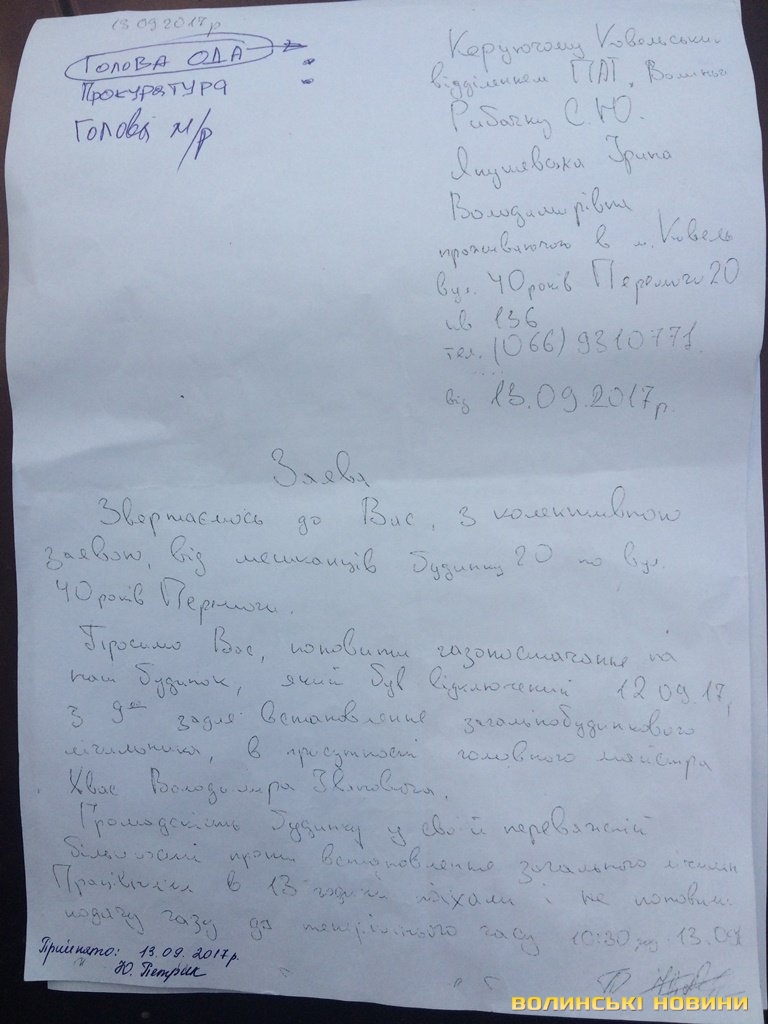 13 09 2017р
Голова ОДА
Прокуратура
Голова м/р
Керуючому Ковельським
відділенням ПАТ "Волиньг
Рибачку С.Ю.
Якушевська Ірина
Володимирівна
проживаючою в м. Ковель
вул. 40 років Перемоги 20
кв 136
тел. (066) 9310771
від 13.09.2017р.
Заява
Звертаємось до Вас, з колективною
заявою, від мешканців будинку 20 по вул.
40 років Перемоги.
Просимо Вас, поновити газопостачання на
наш будинок, який був відключений 12 09.17,
з 9 задля встановлення загальнобудинкового
лічильника, в присутності головного майстра
Хвас Володимира Івановича.
Громадскість будинку у своїй переважній
більшості проти встановлення загального лічильн
Працівники в 13 годині поїхали і не поновили
подачу газу до теперішнього часу 10:30 13.09
Прийнято: 13.09.2017р.
Ю. Петрик
ВОЛИНСЬКІ НОВИНИ